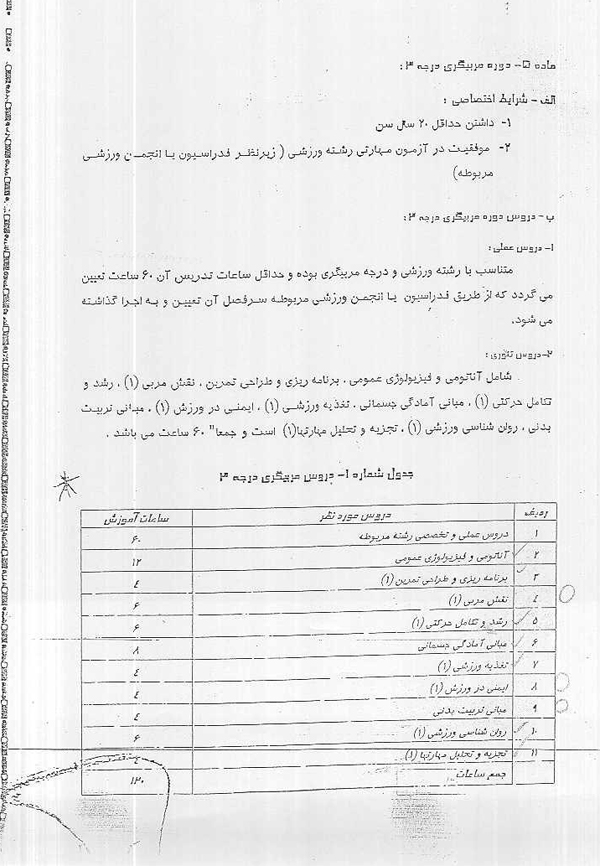 ماده ۵- دوره مربیگری درجه ۳ :
الف - شرایط اختصاصی :
۱- داشتن حداقل ۲۰ سال سن
۲- موفقیت در آزمون مهارتی رشته ورزشی ( زیرنظر فدراسیون یا انجمن ورزشی
مربوطه)
ب- دروس دوره مربیگری درجه ۳ :
۱- دروس عملی :
متناسب با رشته ورزشی و درجه مربیگری بوده و حداقل ساعات تدریس آن ۶۰ ساعت تعیین
می گردد که از طریق فدراسیون یا انجمن ورزشی مربوطه سرفصل آن تعیین و به اجرا گذاشته
می شود.
۲-دروس تئوری :
شامل آناتومی و فیزیولوژی عمومی ، برنامه ریزی و طراحی تمرین ، نقش مربی (۱) ، رشد و
تکامل حرکتی (۱) ، مبانی آمادگی جسمانی ، تغذیه ورزشی (۱) ، ایمنی در ورزش (۱) ، مبانی تربیت
بدنی ، روان شناسی ورزشی (۱) ، تجزیه و تحلیل مهارتها(۱) است و جمعا" ۶۰ ساعت می باشد .
جدول شماره ۱- دروس مربیگری درجه ۳
ردیف دروس مورد نظر ساعات آموزش
۱ دروس عملی و تخصصی رشته مربوطه ۶۰
۲ آناتومی و فیزیولوژی عمومی ۱۲
۳ برنامه ریزی و طراحی تمرین (۱) ٤
٤ نقش مربی (۱) ۶
۵ رشد و تکامل حرکتی (۱) ۶
۶ مبانی آمادگی جسمانی ۸
۷ تغذیه ورزشی (۱) ٤
۸ ایمنی در ورزش (۱) ٤
۹ مبانی تربیت بدنی ٤
۱۰ روان شناسی ورزشی (۱) ۶
۱۱ تجزیه و تحلیل مهارتها (۱)
جمع ساعات ۱۲۰